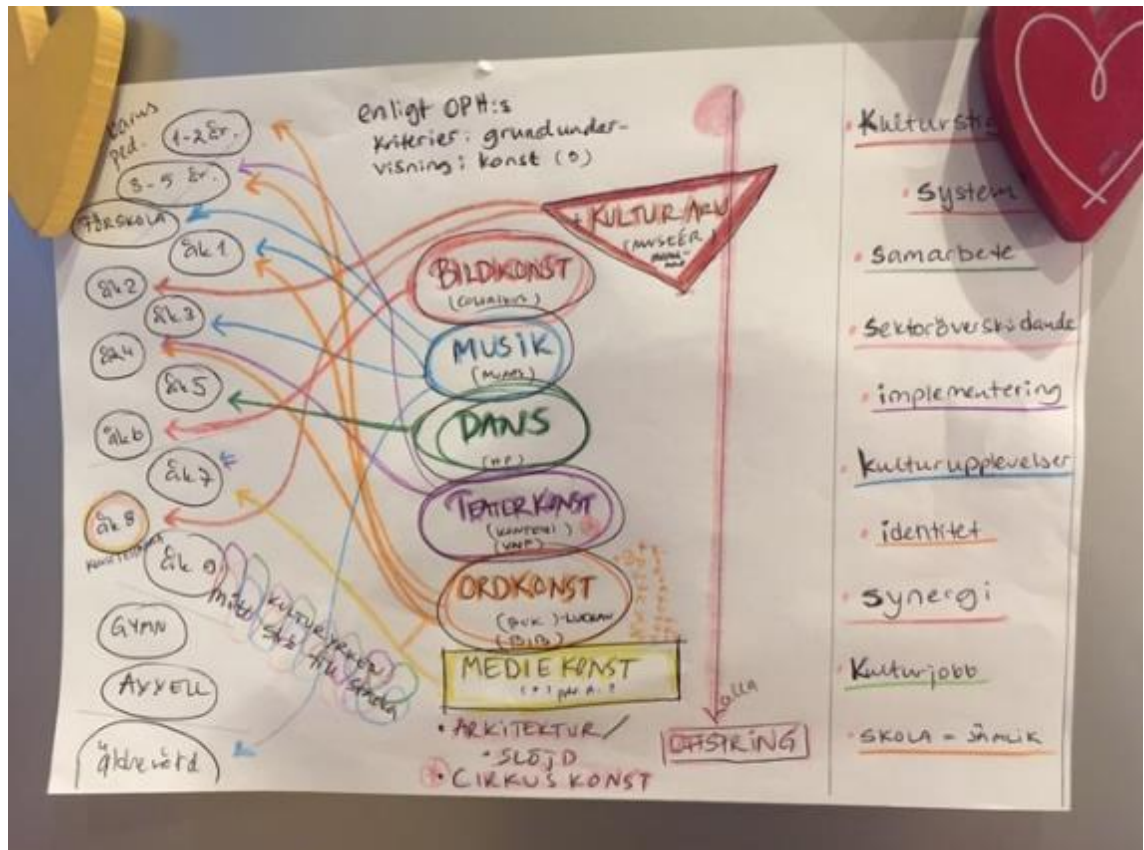 ped.
1-2 År.
3-5 År.
FÖRSKOLA
åk 1
åk 2
åk 3
åk 4
åk 5
åk 6
åk 7
åk 8
åk 9
GYMN
AXXELL
äldrevård
enligt OPH:s
kriterier: grundunder-
visning: konst (5)
+ KULTURARV
(MUSEÉR)
BILDKONST
MUSIK
DANS
(HP)
TEATERKONST
ORDKONST
(BUK)-LUCKAN
(BIB)
MEDIEKONST
• ARKITEKTUR/
• SLÖJD
• CIRKUSKONST
KULTURYRKEN
• System
• Samarbete
• Sektoröverskridande
• implementering
• Kulturupplevelser
• identitet
• Synergi
• Kulturjobb
• SKOLA = JÄMLIK